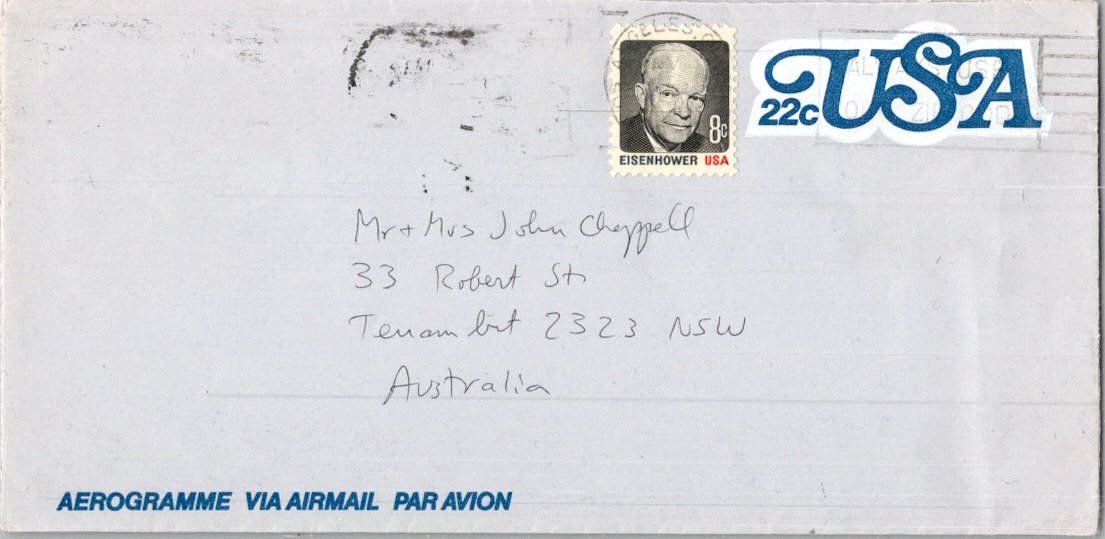 GELES, C
22c USA
8c
EISENHOWER USA
Mr + Mrs John Chappell
33 Robert St
Tenambit 2323 NSW
Australia
AEROGRAMME VIA AIRMAIL PAR AVION